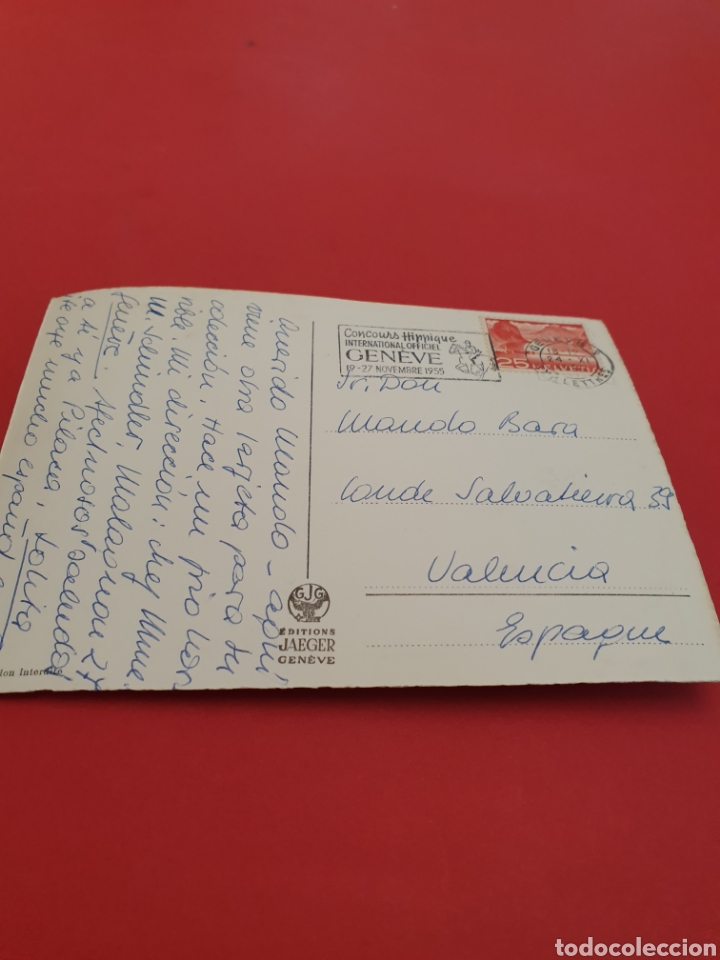 Querido Manolo – aquí
viene otra tarjeta para tu
colección. Hace un frío hor-
rible. Mi dirección: chez Mme.
M. Schindler, Malagnou 27
Genève. Afectuosos saludos
a ti y a Pilar, Lolita
se oye mucho español
Concours Hippique
INTERNATIONAL OFFICIEL
GENÈVE
19-27 NOVEMBRE 1955
25
HELVETIA
LETTRES
Sr. Don
Manolo Bara
Conde Salvatierra 39
Valencia
Espagne
GJG
ÉDITIONS
JAEGER
GENÈVE
todocoleccion